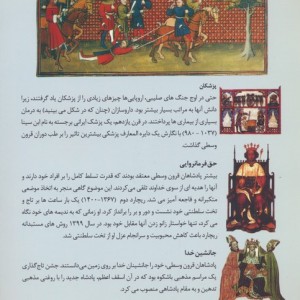 پزشکان
حتی در اوج جنگ های صلیبی، اروپایی‌ها چیزهای زیادی را از پزشکان یاد گرفتند، زیرا
دانش آنها به مراتب بسیار بیشتر بود. داروسازان (چنان که در شکل می بینید) به درمان
بسیاری از بیماری ها پرداختند. در قرن یازدهم، یک پزشک ایرانی برجسته به نام ابن سینا
(۱۰۳۷ - ۹۸۰) با نگارش یک دایره المعارف پزشکی بیشترین تاثیر را بر طب دوران قرون
وسطی گذاشت.
حق فرمانروایی
بیشتر پادشاهان قرون وسطی معتقد بودند که قدرت تسلط کامل را بر افراد خود دارند و
آنها را هدیه ای از سوی خداوند تلقی می کردند. این موضوع گاهی منجر به اتخاذ موضوعی
متکبرانه و فاجعه آمیز می شد. ریچارد دوم (۱۳۶۷-۱۴۰۰) یک بار ساعت ها بر تاج و
تخت سلطنتی خود نشست و دور و بر را برانداز کرد تا زمانی که به ندیمه های خود نگاه
می کرد، تنها خواستار زانو زدن آنها مقابل خود بود. در سال ۱۳۹۹ روش های مستبدانه
ریچارد باعث کاهش محبوبیت و سرانجام عزل او از تخت سلطنتی شد.
جانشین خدا
پادشاهان قرون وسطی، خود را جانشینان خدا بر روی زمین می‌دانستند. جشن تاج‌گذاری
یک مراسم مذهبی باشکوه بود که در آن اسقف اعظم، پادشاه جدید را با روغنی مذهبی
تدهین و به مقام پادشاهی منصوب می کرد.